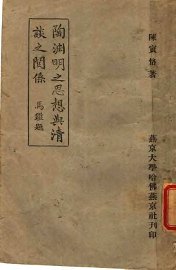 陳寅恪著
陶淵明之思想與清
談之關係
馬鑑題
燕京大學哈佛燕京社刊印